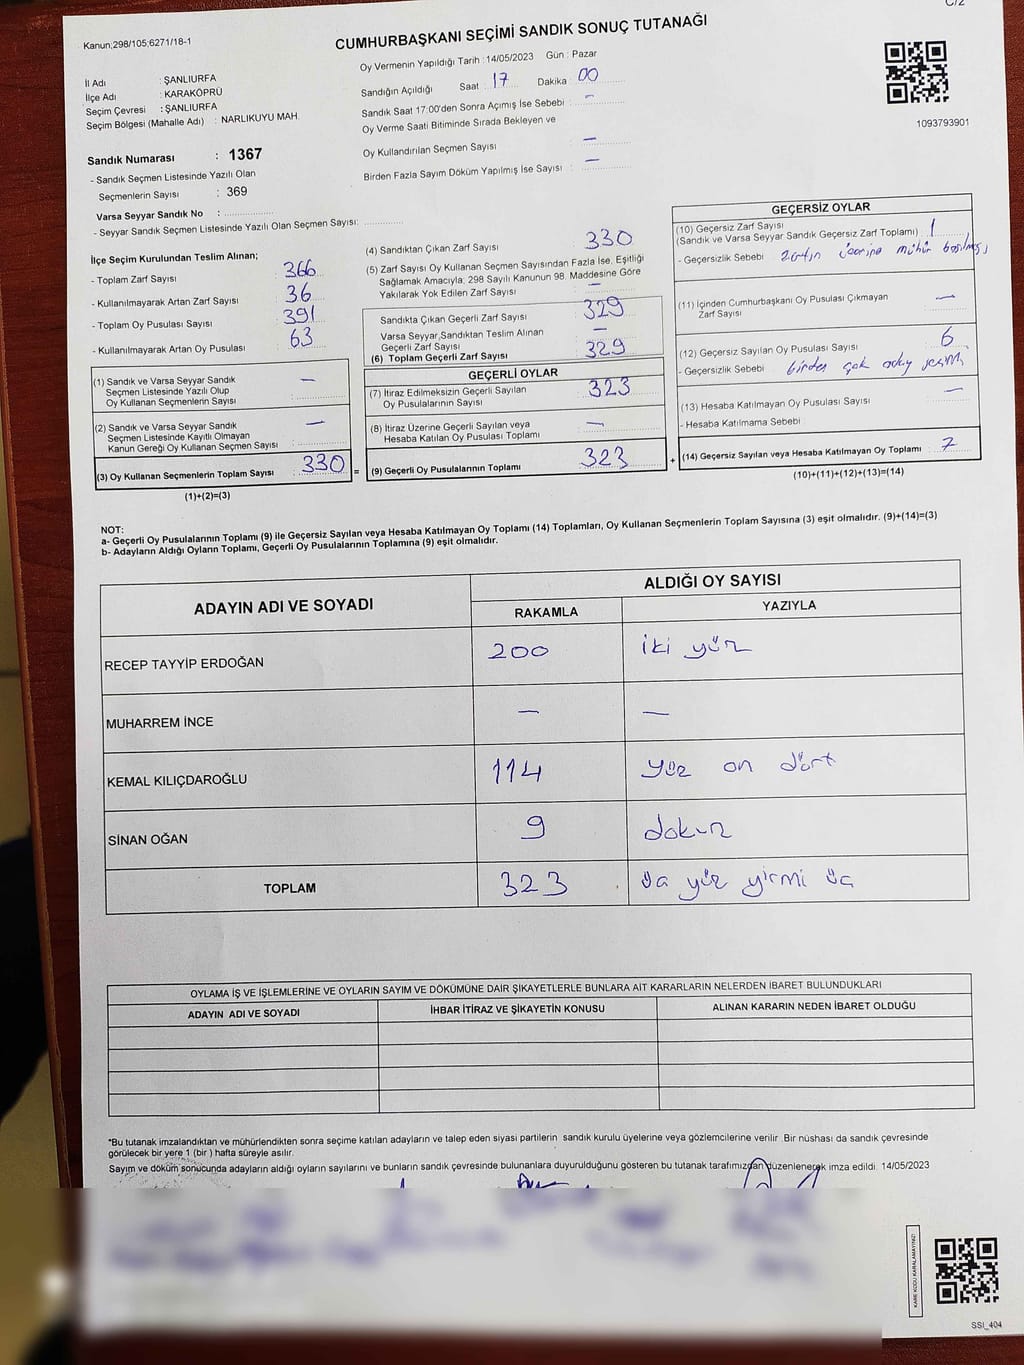 C/2
Kanun;298/105;6271/18-1
CUMHURBAŞKANI SEÇİMİ SANDIK SONUÇ TUTANAĞI
Oy Vermenin Yapıldığı Tarih : 14/05/2023 Gün : Pazar
İl Adı : ŞANLIURFA
İlçe Adı : KARAKÖPRÜ
Seçim Çevresi : ŞANLIURFA
Seçim Bölgesi (Mahalle Adı) : NARLIKUYU MAH.
Sandığın Açıldığı Saat 17 Dakika 00
Sandık Saat 17:00'den Sonra Açımış İse Sebebi : –
Oy Verme Saati Bitiminde Sırada Bekleyen ve
Oy Kullandırılan Seçmen Sayısı : –
Birden Fazla Sayım Döküm Yapılmış İse Sayısı : –
1093793901
Sandık Numarası : 1367
- Sandık Seçmen Listesinde Yazılı Olan
Seçmenlerin Sayısı : 369
Varsa Seyyar Sandık No :
- Seyyar Sandık Seçmen Listesinde Yazılı Olan Seçmen Sayısı:
İlçe Seçim Kurulundan Teslim Alınan;
- Toplam Zarf Sayısı : 366
- Kullanılmayarak Artan Zarf Sayısı : 36
- Toplam Oy Pusulası Sayısı : 391
- Kullanılmayarak Artan Oy Pusulası : 63
(1) Sandık ve Varsa Seyyar Sandık
Seçmen Listesinde Yazılı Olup
Oy Kullanan Seçmenlerin Sayısı : –
(2) Sandık ve Varsa Seyyar Sandık
Seçmen Listesinde Kayıtlı Olmayan
Kanun Gereği Oy Kullanan Seçmen Sayısı : –
(3) Oy Kullanan Seçmenlerin Toplam Sayısı : 330 =
(1)+(2)=(3)
(4) Sandıktan Çıkan Zarf Sayısı : 330
(5) Zarf Sayısı Oy Kullanan Seçmen Sayısından Fazla İse, Eşitliği
Sağlamak Amacıyla, 298 Sayılı Kanunun 98. Maddesine Göre
Yakılarak Yok Edilen Zarf Sayısı : –
Sandıkta Çıkan Geçerli Zarf Sayısı : 329
Varsa Seyyar Sandıktan Teslim Alınan
Geçerli Zarf Sayısı : –
(6) Toplam Geçerli Zarf Sayısı : 329
GEÇERLİ OYLAR
(7) İtiraz Edilmeksizin Geçerli Sayılan
Oy Pusulalarının Sayısı : 323
(8) İtiraz Üzerine Geçerli Sayılan veya
Hesaba Katılan Oy Pusulası Toplamı : –
(9) Geçerli Oy Pusulalarının Toplamı : 323 +
GEÇERSİZ OYLAR
(10) Geçersiz Zarf Sayısı
(Sandık ve Varsa Seyyar Sandık Geçersiz Zarf Toplamı) : 1
- Geçersizlik Sebebi : Zarfın üzerine mühür basılmış
(11) İçinden Cumhurbaşkanı Oy Pusulası Çıkmayan
Zarf Sayısı : –
(12) Geçersiz Sayılan Oy Pusulası Sayısı : 6
- Geçersizlik Sebebi : birden çok aday seçimi
(13) Hesaba Katılmayan Oy Pusulası Sayısı : –
- Hesaba Katılmama Sebebi :
(14) Geçersiz Sayılan veya Hesaba Katılmayan Oy Toplamı : 7
(10)+(11)+(12)+(13)=(14)
NOT:
a- Geçerli Oy Pusulalarının Toplamı (9) ile Geçersiz Sayılan veya Hesaba Katılmayan Oy Toplamı (14) Toplamları, Oy Kullanan Seçmenlerin Toplam Sayısına (3) eşit olmalıdır. (9)+(14)=(3)
b- Adayların Aldığı Oyların Toplamı, Geçerli Oy Pusulalarının Toplamına (9) eşit olmalıdır.
ADAYIN ADI VE SOYADI ALDIĞI OY SAYISI
RAKAMLA YAZIYLA
RECEP TAYYİP ERDOĞAN 200 iki yüz
MUHARREM İNCE – –
KEMAL KILIÇDAROĞLU 114 yüz on dört
SİNAN OĞAN 9 dokuz
TOPLAM 323 üç yüz yirmi üç
OYLAMA İŞ VE İŞLEMLERİNE VE OYLARIN SAYIM VE DÖKÜMÜNE DAİR ŞİKAYETLERLE BUNLARA AİT KARARLARIN NELERDEN İBARET BULUNDUKLARI
ADAYIN ADI VE SOYADI İHBAR İTİRAZ VE ŞİKAYETİN KONUSU ALINAN KARARIN NEDEN İBARET OLDUĞU
*Bu tutanak imzalandıktan ve mühürlendikten sonra seçime katılan adayların ve talep eden siyasi partilerin sandık kurulu üyelerine veya gözlemcilerine verilir. Bir nüshası da sandık çevresinde
görülecek bir yere 1 (bir) hafta süreyle asılır.
Sayım ve döküm sonucunda adayların aldığı oyların sayılarını ve bunların sandık çevresinde bulunanlara duyurulduğunu gösteren bu tutanak tarafımızdan düzenlenerek imza edildi. 14/05/2023
KARE KODU KARALAMAYINIZ!
SSI_404